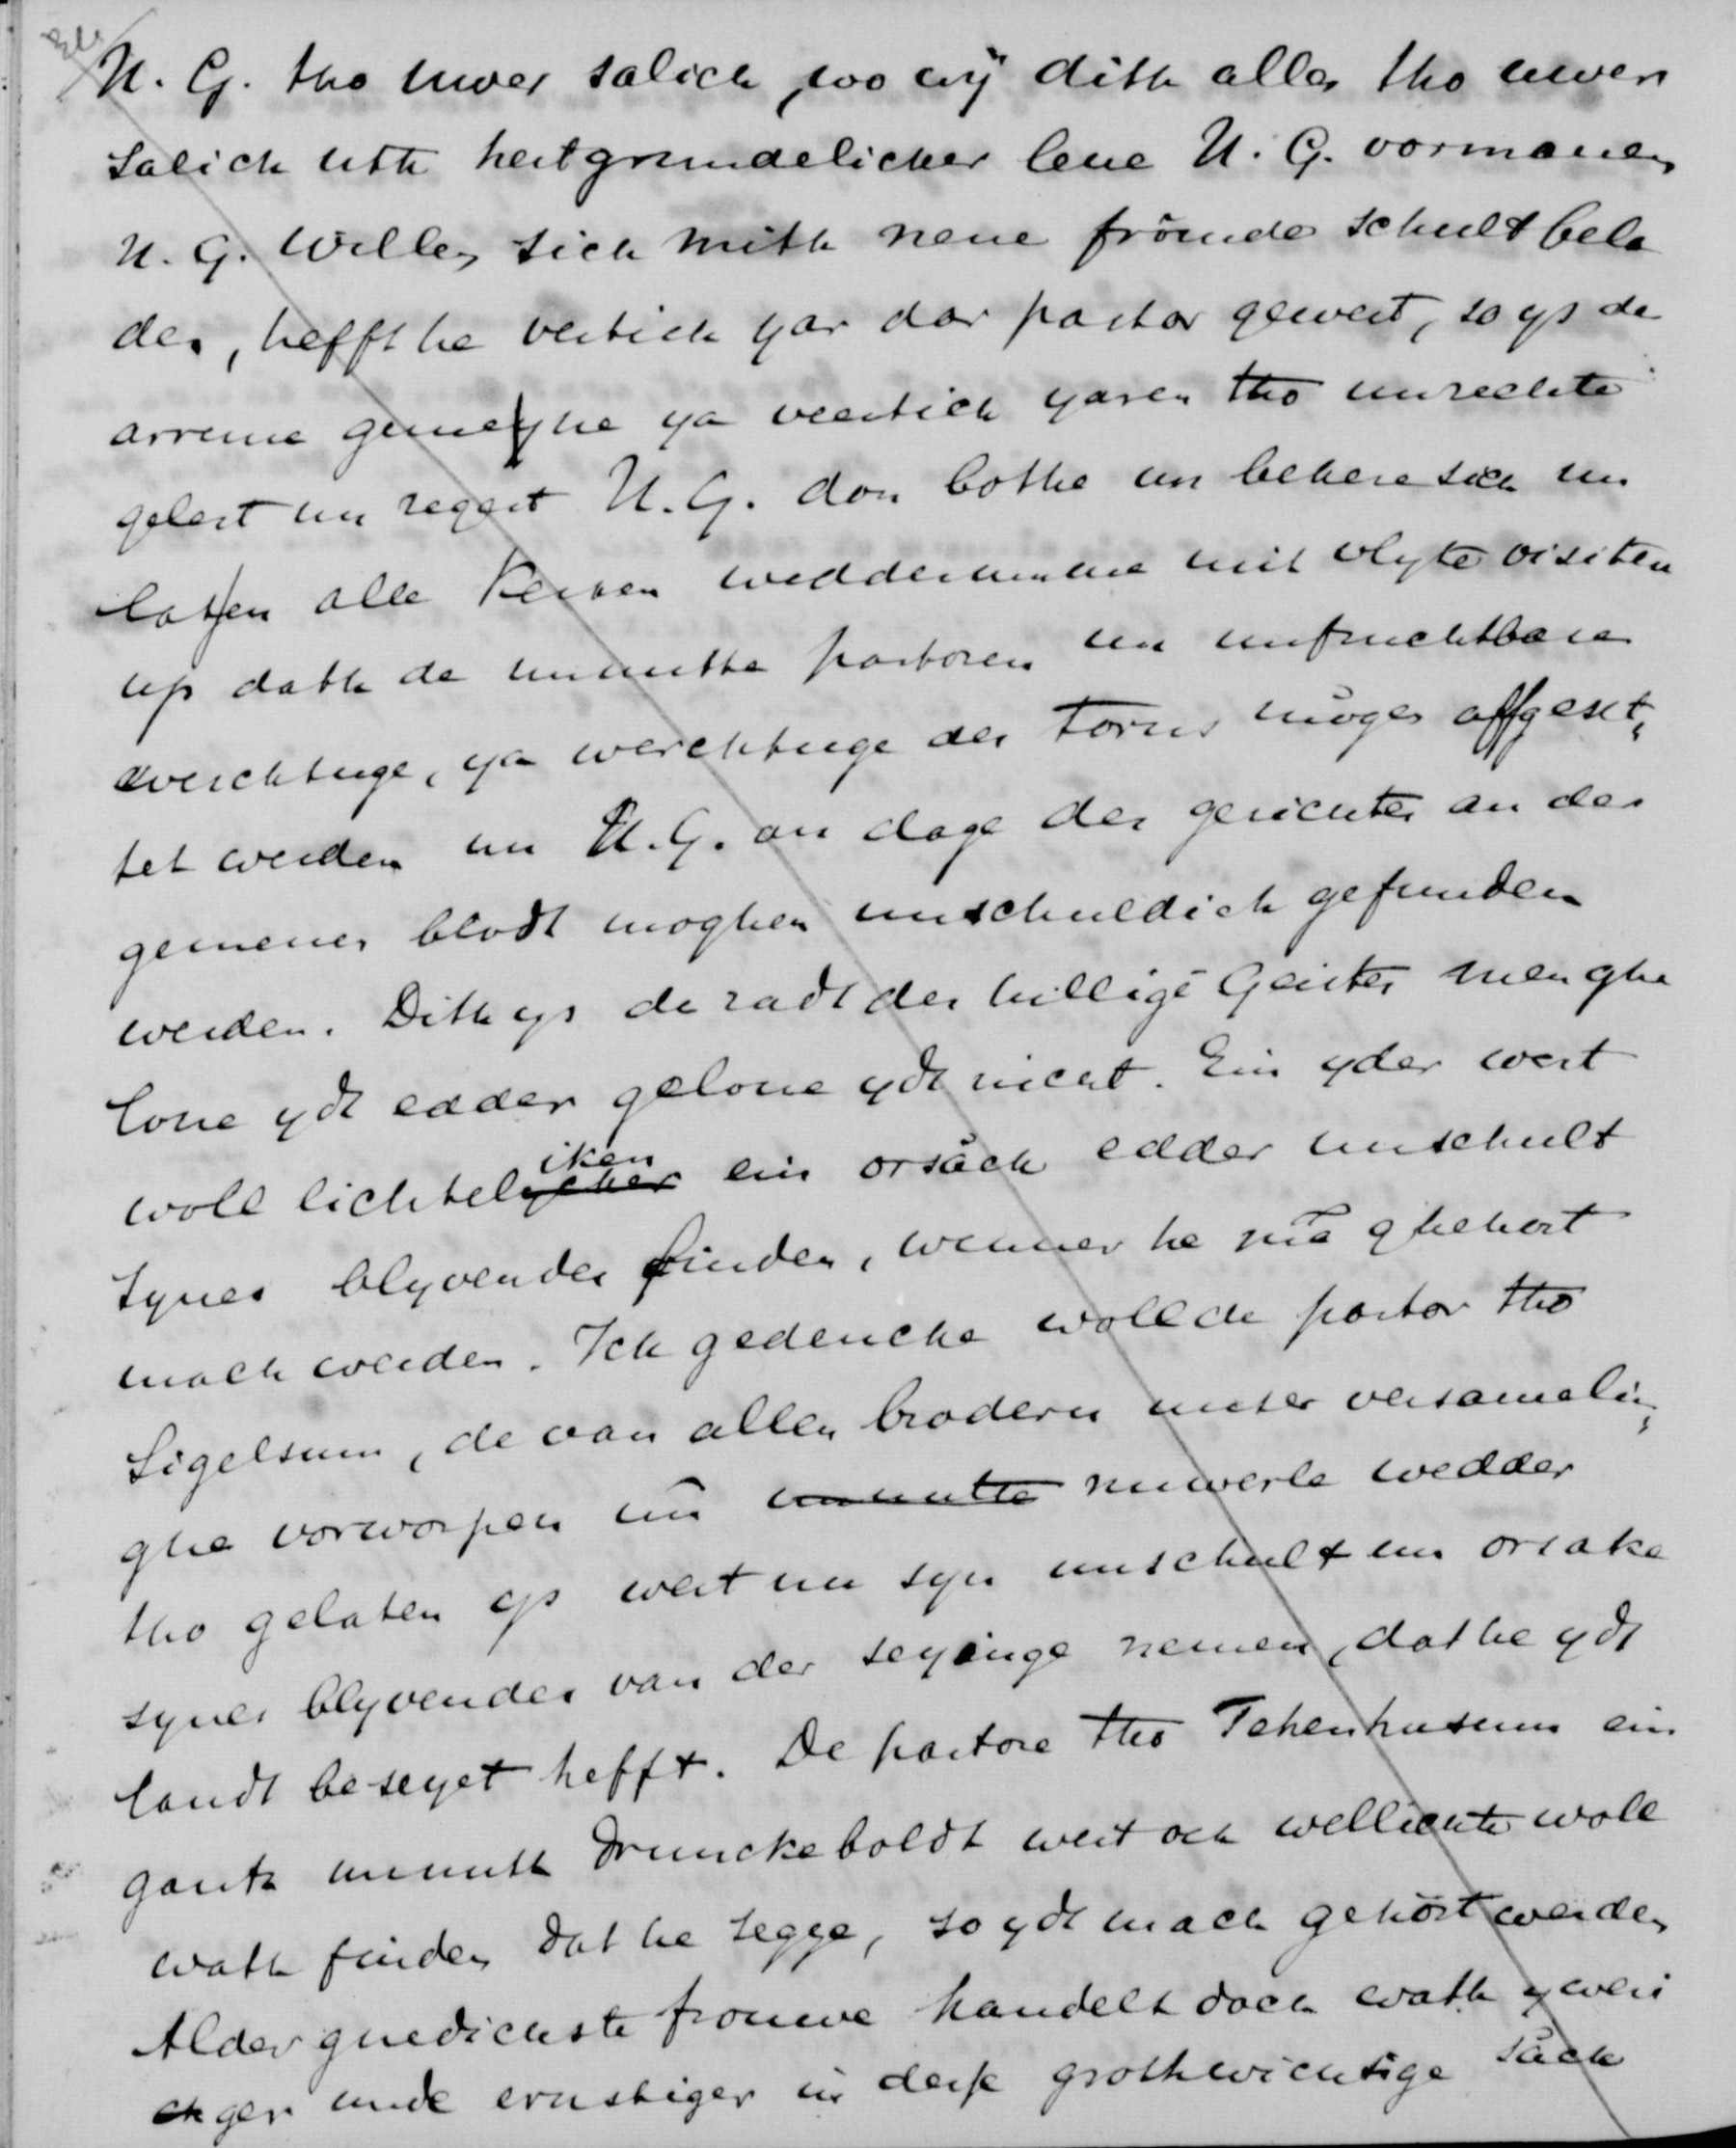 U. G. tho uwer salich, wo wÿ dith alles tho uwen
salich uth hertgrundelicher leue U. G. vormanen
U. G. willen sick mith nene frömde schult bela
den, hefft he vertich yar dar pastor gewest, so ys de
arreme gemeyne ya veertich yaren tho unrechte
gelert un regert U. G. don bothe un bekere sick un
laten alle kerken wedderumme mit vlyte visiteren
up dath de unnutte pastoren un unfruchtbare
werchtuge, ya werchtuge des torns mögen affgeset,
tet werden un U. G. an dage des gerichtes an des
gemenes blodt moghen unschuldich gefunden
werden. Dith ys de radt des hillige Geistes men ghe
love ydt edder gelove ydt nicht. Ein yder wert
woll lichteliken ein orsäck edder unschult
synes blyvendes finden, wenner he ma ghehört
mach werden. Ick gedencke woll de pastor tho
Sigelsum, de van allen brodern unser versamelin,
ghe vorworpen un nuwerle wedder
tho gelaten ys wert nu syn unschult un orsake
synes blyvendes van der seyinge nemen, dat he ydt
landt beseyet hefft. De pastore tho Tehenhusum ein
gantz unnuth drunckeboldt wert ock wellichte woll
wath finden dat he segge, so ydt mach gehört werden
Alder gnedichste frouwe handelt doch wath yveri
ger unde ernstiger in desse grothwichtige säcke